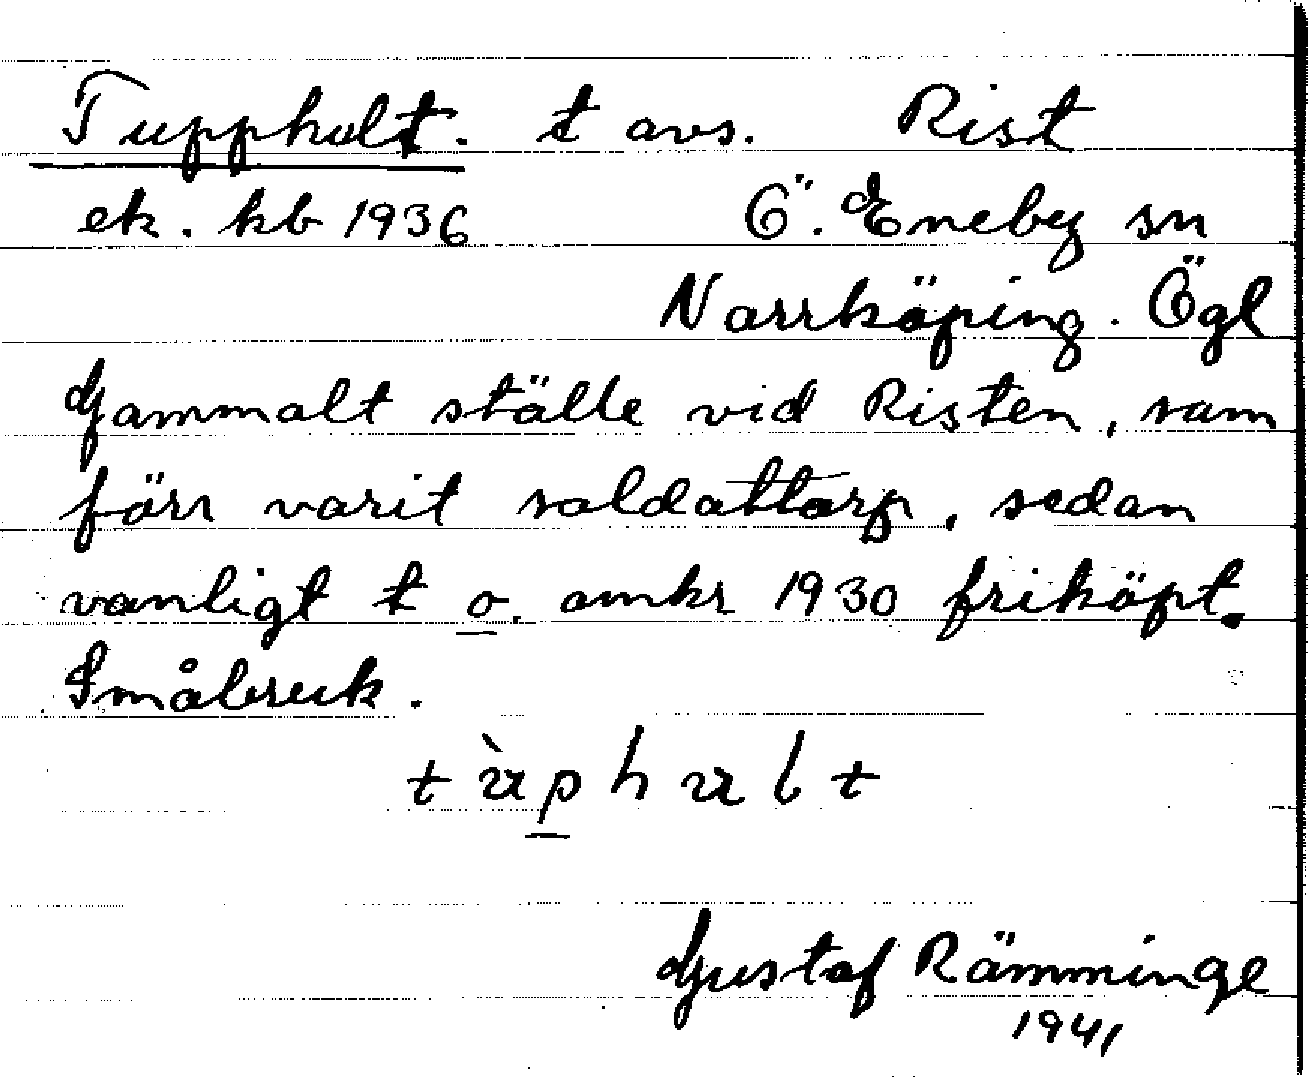 Tuppholt. t avs. Rist
ek. kb 1936 Ö. Eneby sn
Norrköping. Ögl
Gammalt ställe vid Risten, som
förr varit soldattorp, sedan
vanligt t o. omkr 1930 friköpt.
Småbruk.
tùphult
Gustaf Rämminge
1941